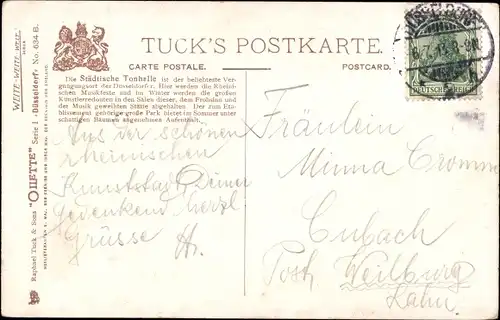 TUCK'S POSTKARTE.
CARTE POSTALE. POSTCARD.
Die Städtische Tonhalle ist der beliebteste Ver-
gnügungsort der Düsseldorfer. Hier werden die Rheini-
schen Musikfeste und im Winter werden die großen
Künstlerredouten in den Sälen dieser, dem Frohsinn und
der Musik geweihten Stätte abgehalten. Der zum Eta-
blissement gehörige große Park bietet im Sommer unter
schattigen Bäumen angenehmen Aufenthalt.
Raphael Tuck & Sons "OILETTE" Serie 1 «Düsseldorf» No. 634 B.
WEITE-WEITE-WELT
DEUTSCHES REICH
Aus der schönen
rheinischen
Kunststadt Deiner
gedenkend herzl.
Grüsse
Fräulein
Minna Cromme
Cubach
Post Weilburg
Lahn